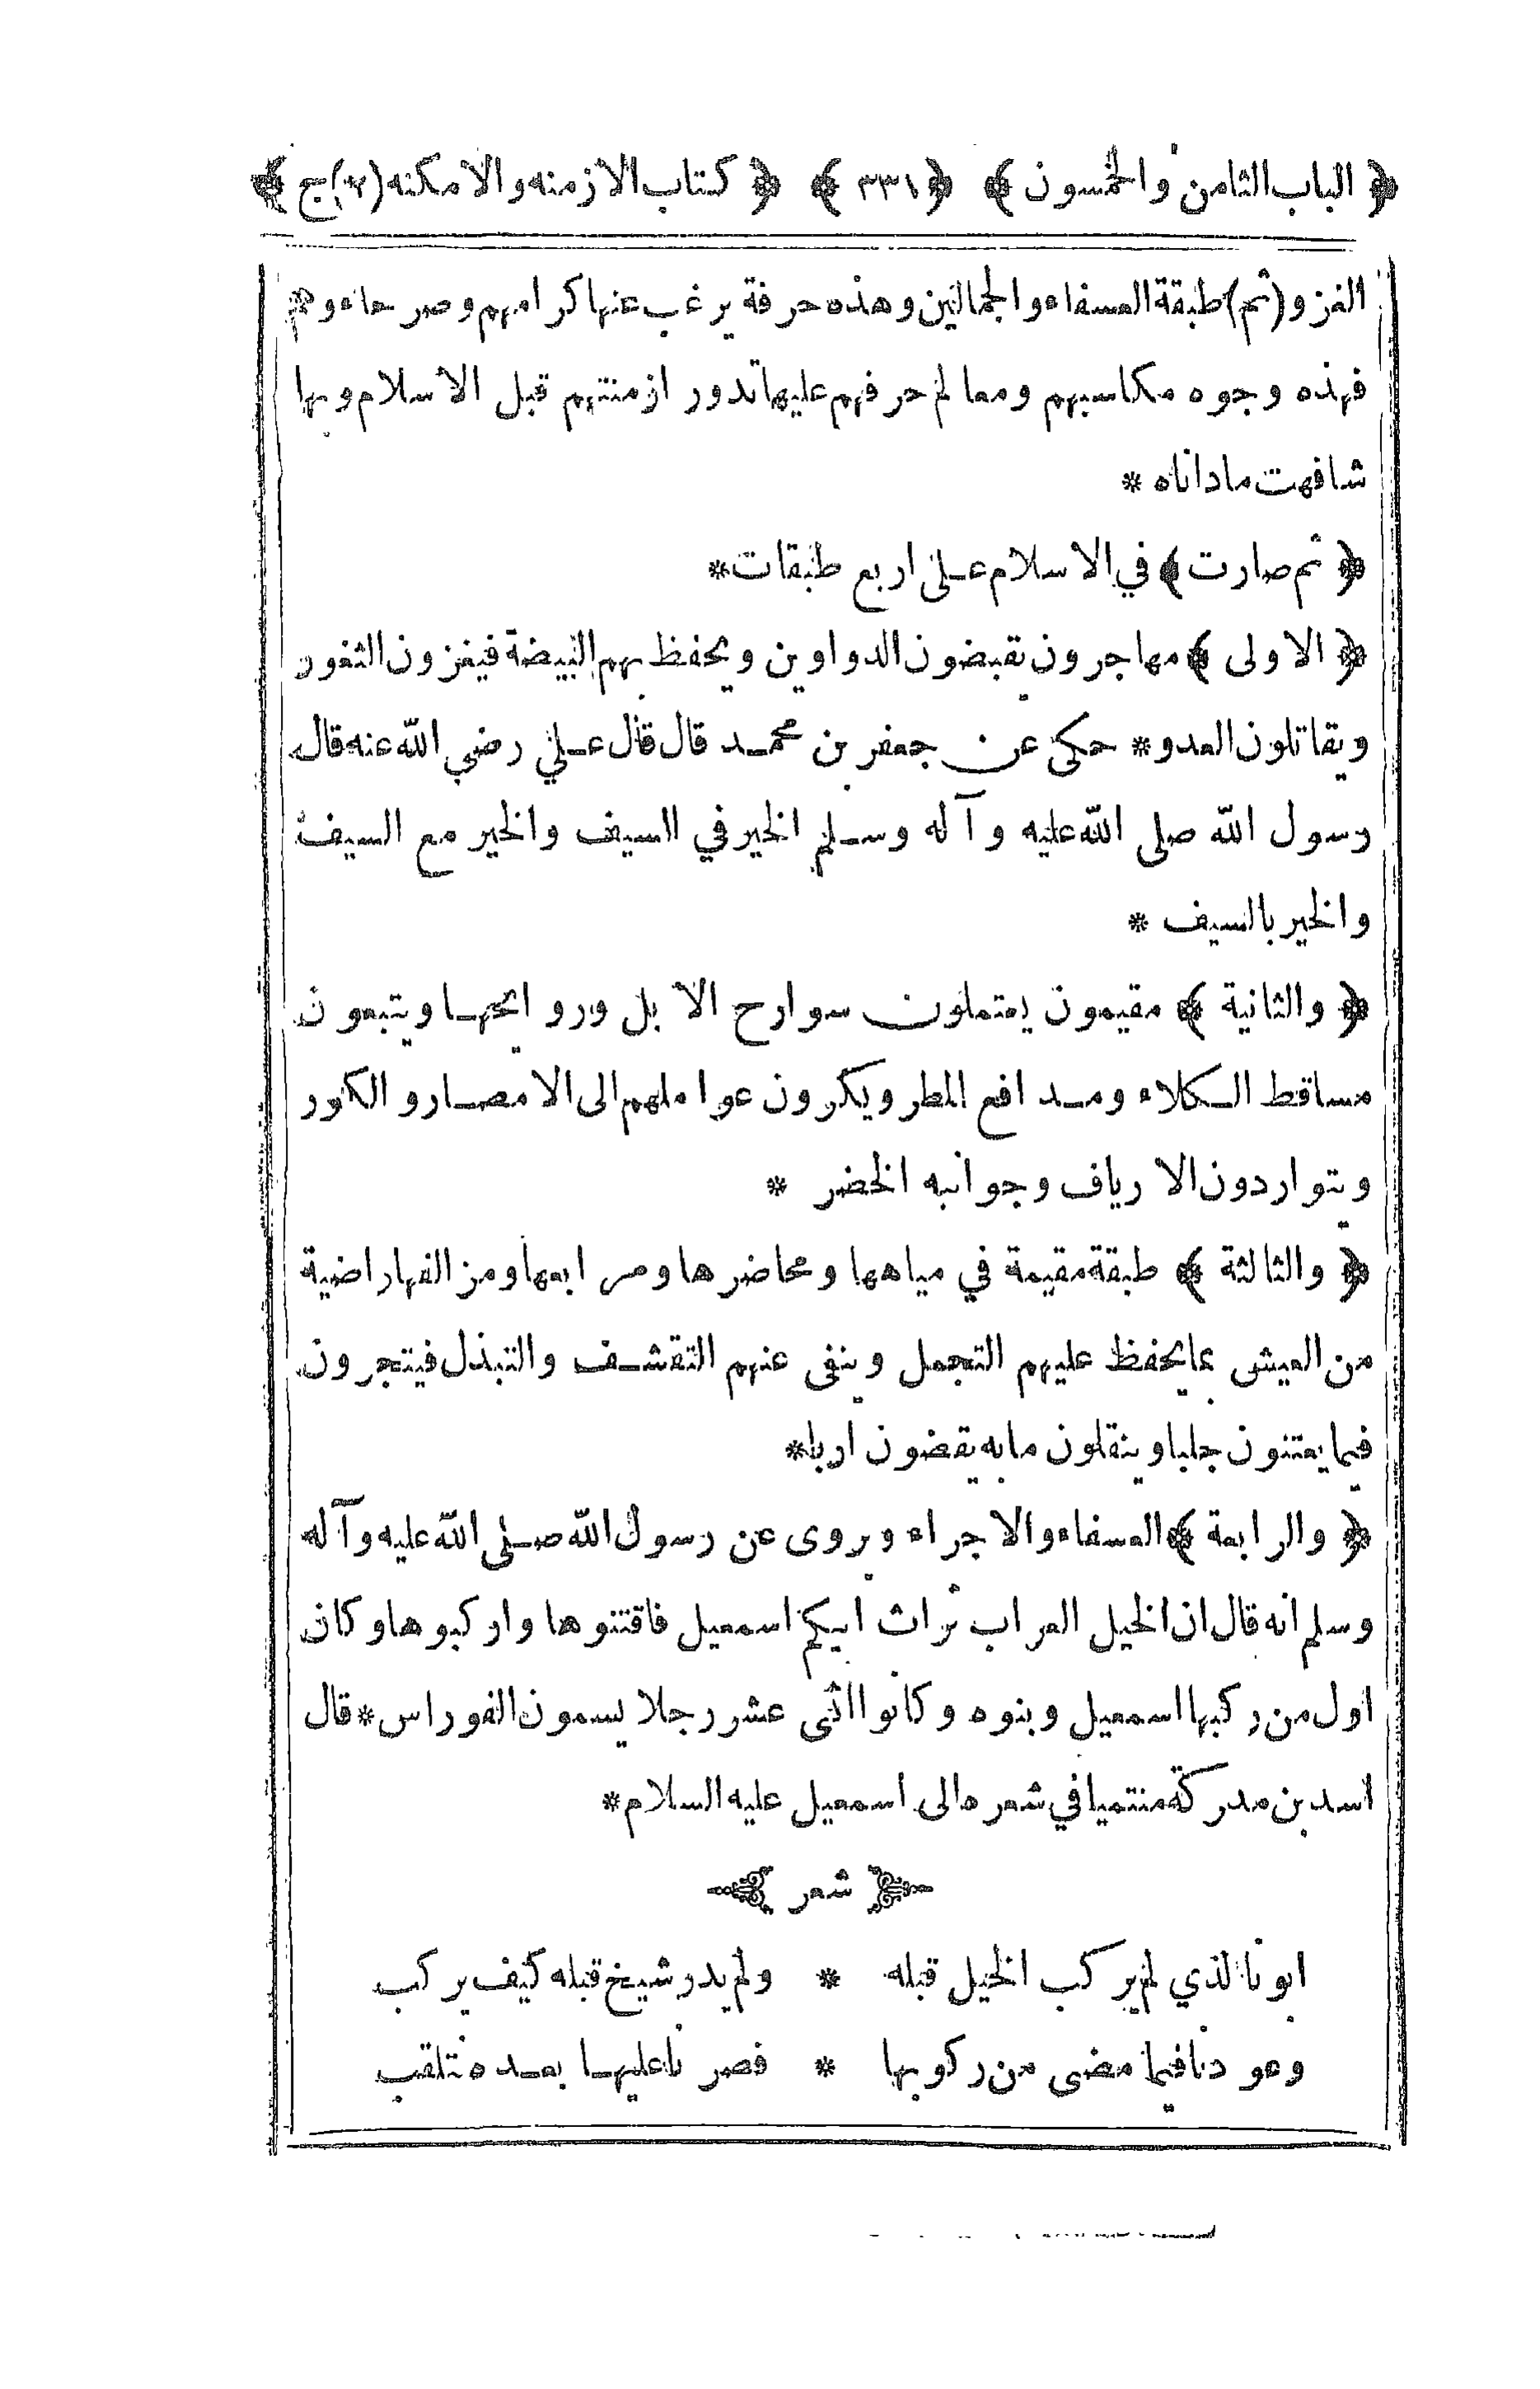 ﴿ الباب الثامن والخمسون ﴾ ﴿ ٣٣١ ﴾ ﴿ كتاب الازمنه والامكنه (٢) ج ﴾
الغزو (ثم) طبقة العسفاء والجمالين وهذه حرفة يرغب عنها كرامهم وصرحاءوهم
فهذه وجوه مكاسبهم ومعالم حرفهم عليها تدور ازمنتهم قبل الاسلام وبها
شافهت ماداناه *
﴿ ثم صارت ﴾ في الاسلام على اربع طبقات *
﴿ الاولى ﴾ مهاجرون يقبضون الدواوين ويحفظ بهم البيضة فيغزون الثغور
ويقاتلون العدو * حكى عن جعفر بن محمد قال قال علي رضي الله عنه قال
رسول الله صلى الله عليه وآله وسلم الخير في السيف والخير مع السيف
والخير بالسيف *
﴿ والثانية ﴾ مقيمون يعتملون سوارح الابل وروائحها ويتبعون
مساقط الكلاء ومدافع المطر ويكرون عواملهم الى الامصار والكور
ويتواردون الارياف وجوانبه الخضر *
﴿ والثالثة ﴾ طبقة مقيمة في مياهها ومحاضرها ومرابعها ومزالفها راضية
من العيش بما يحفظ عليهم التجمل وينفى عنهم التقشف والتبذل فيتجرون
فيما يعتنون جلبا وينقلون ما به يقضون اربا *
﴿ والرابعة ﴾ العسفاء والاجراء ويروى عن رسول الله صلى الله عليه وآله
وسلم انه قال ان الخيل العراب تراث ابيكم اسمعيل فاقتنوها واركبوها وكان
اول من ركبها اسمعيل وبنوه وكانوا اثنى عشر رجلا يسمون الفوراس * قال
اسد بن مدركة منتميا في شعره الى اسمعيل عليه السلام *
شعر
ابونا الذي لم يركب الخيل قبله * ولم يدر شيخ قبله كيف يركب
وعودنا فيما مضى من ركوبها * فصرنا عليها بعده نتلقب